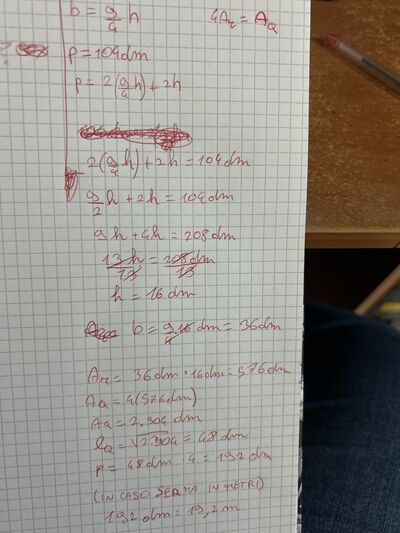 b = 9/4 h
4Ar = AQ
p = 104dm
p = 2(9/4 h) + 2h
2(9/4 h) + 2h = 104dm
9/2 h + 2h = 104dm
9h + 4h = 208dm
13h/13 = 208dm/13
h = 16 dm
b = 9·16/4 dm = 36dm
Ar = 36dm · 16dm = 576dm
AQ = 4(576dm)
AQ = 2.304 dm
lQ = √2.304 = 48 dm
p = 48dm · 4 = 192 dm
(IN CASO SERVA IN METRI)
192 dm = 19,2 m